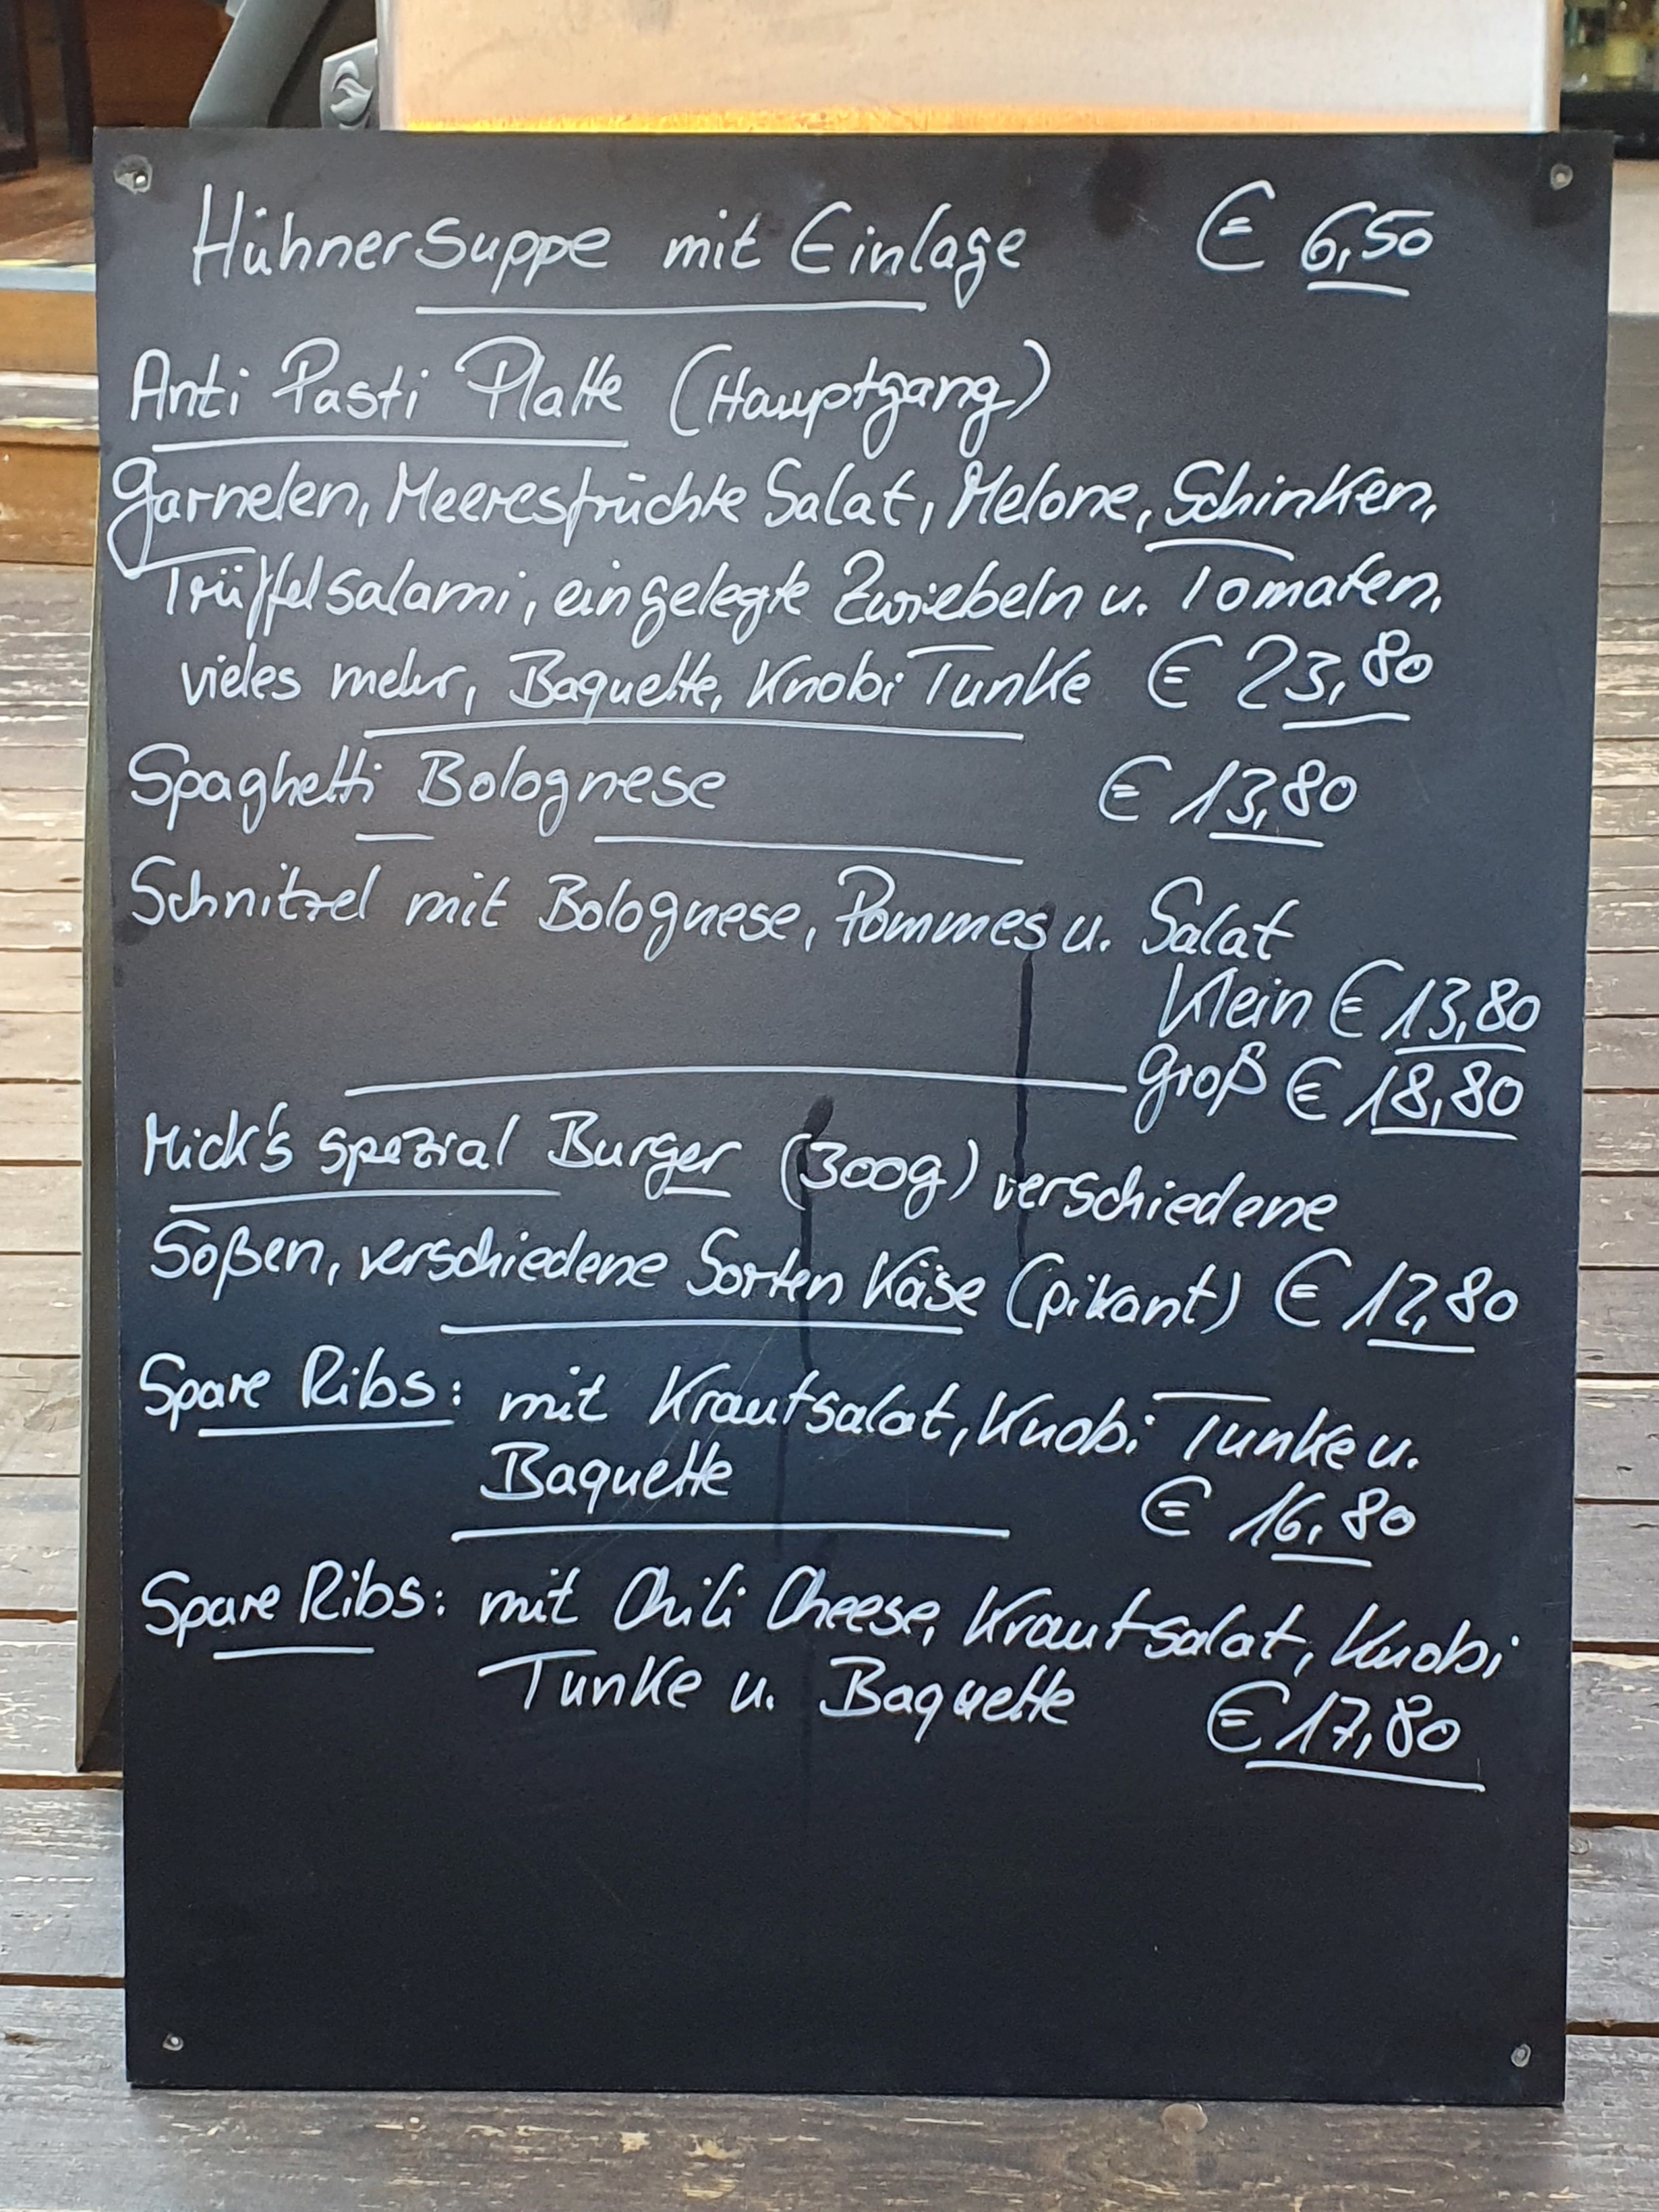 Hühnersuppe mit Einlage € 6,50
Anti Pasti Platte (Hauptgang)
Garnelen, Meeresfrüchte Salat, Melone, Schinken,
Trüffelsalami, eingelegte Zwiebeln u. Tomaten,
vieles mehr, Baquette, Knobi Tunke € 23,80
Spaghetti Bolognese € 13,80
Schnitzel mit Bolognese, Pommes u. Salat
Klein € 13,80
Groß € 18,80
Mick's spezial Burger (300g) verschiedene
Soßen, verschiedene Sorten Käse (pikant) € 12,80
Spare Ribs: mit Krautsalat, Knobi Tunke u.
Baquette € 16,80
Spare Ribs: mit Chili Cheese, Krautsalat, Knobi
Tunke u. Baquette € 17,80